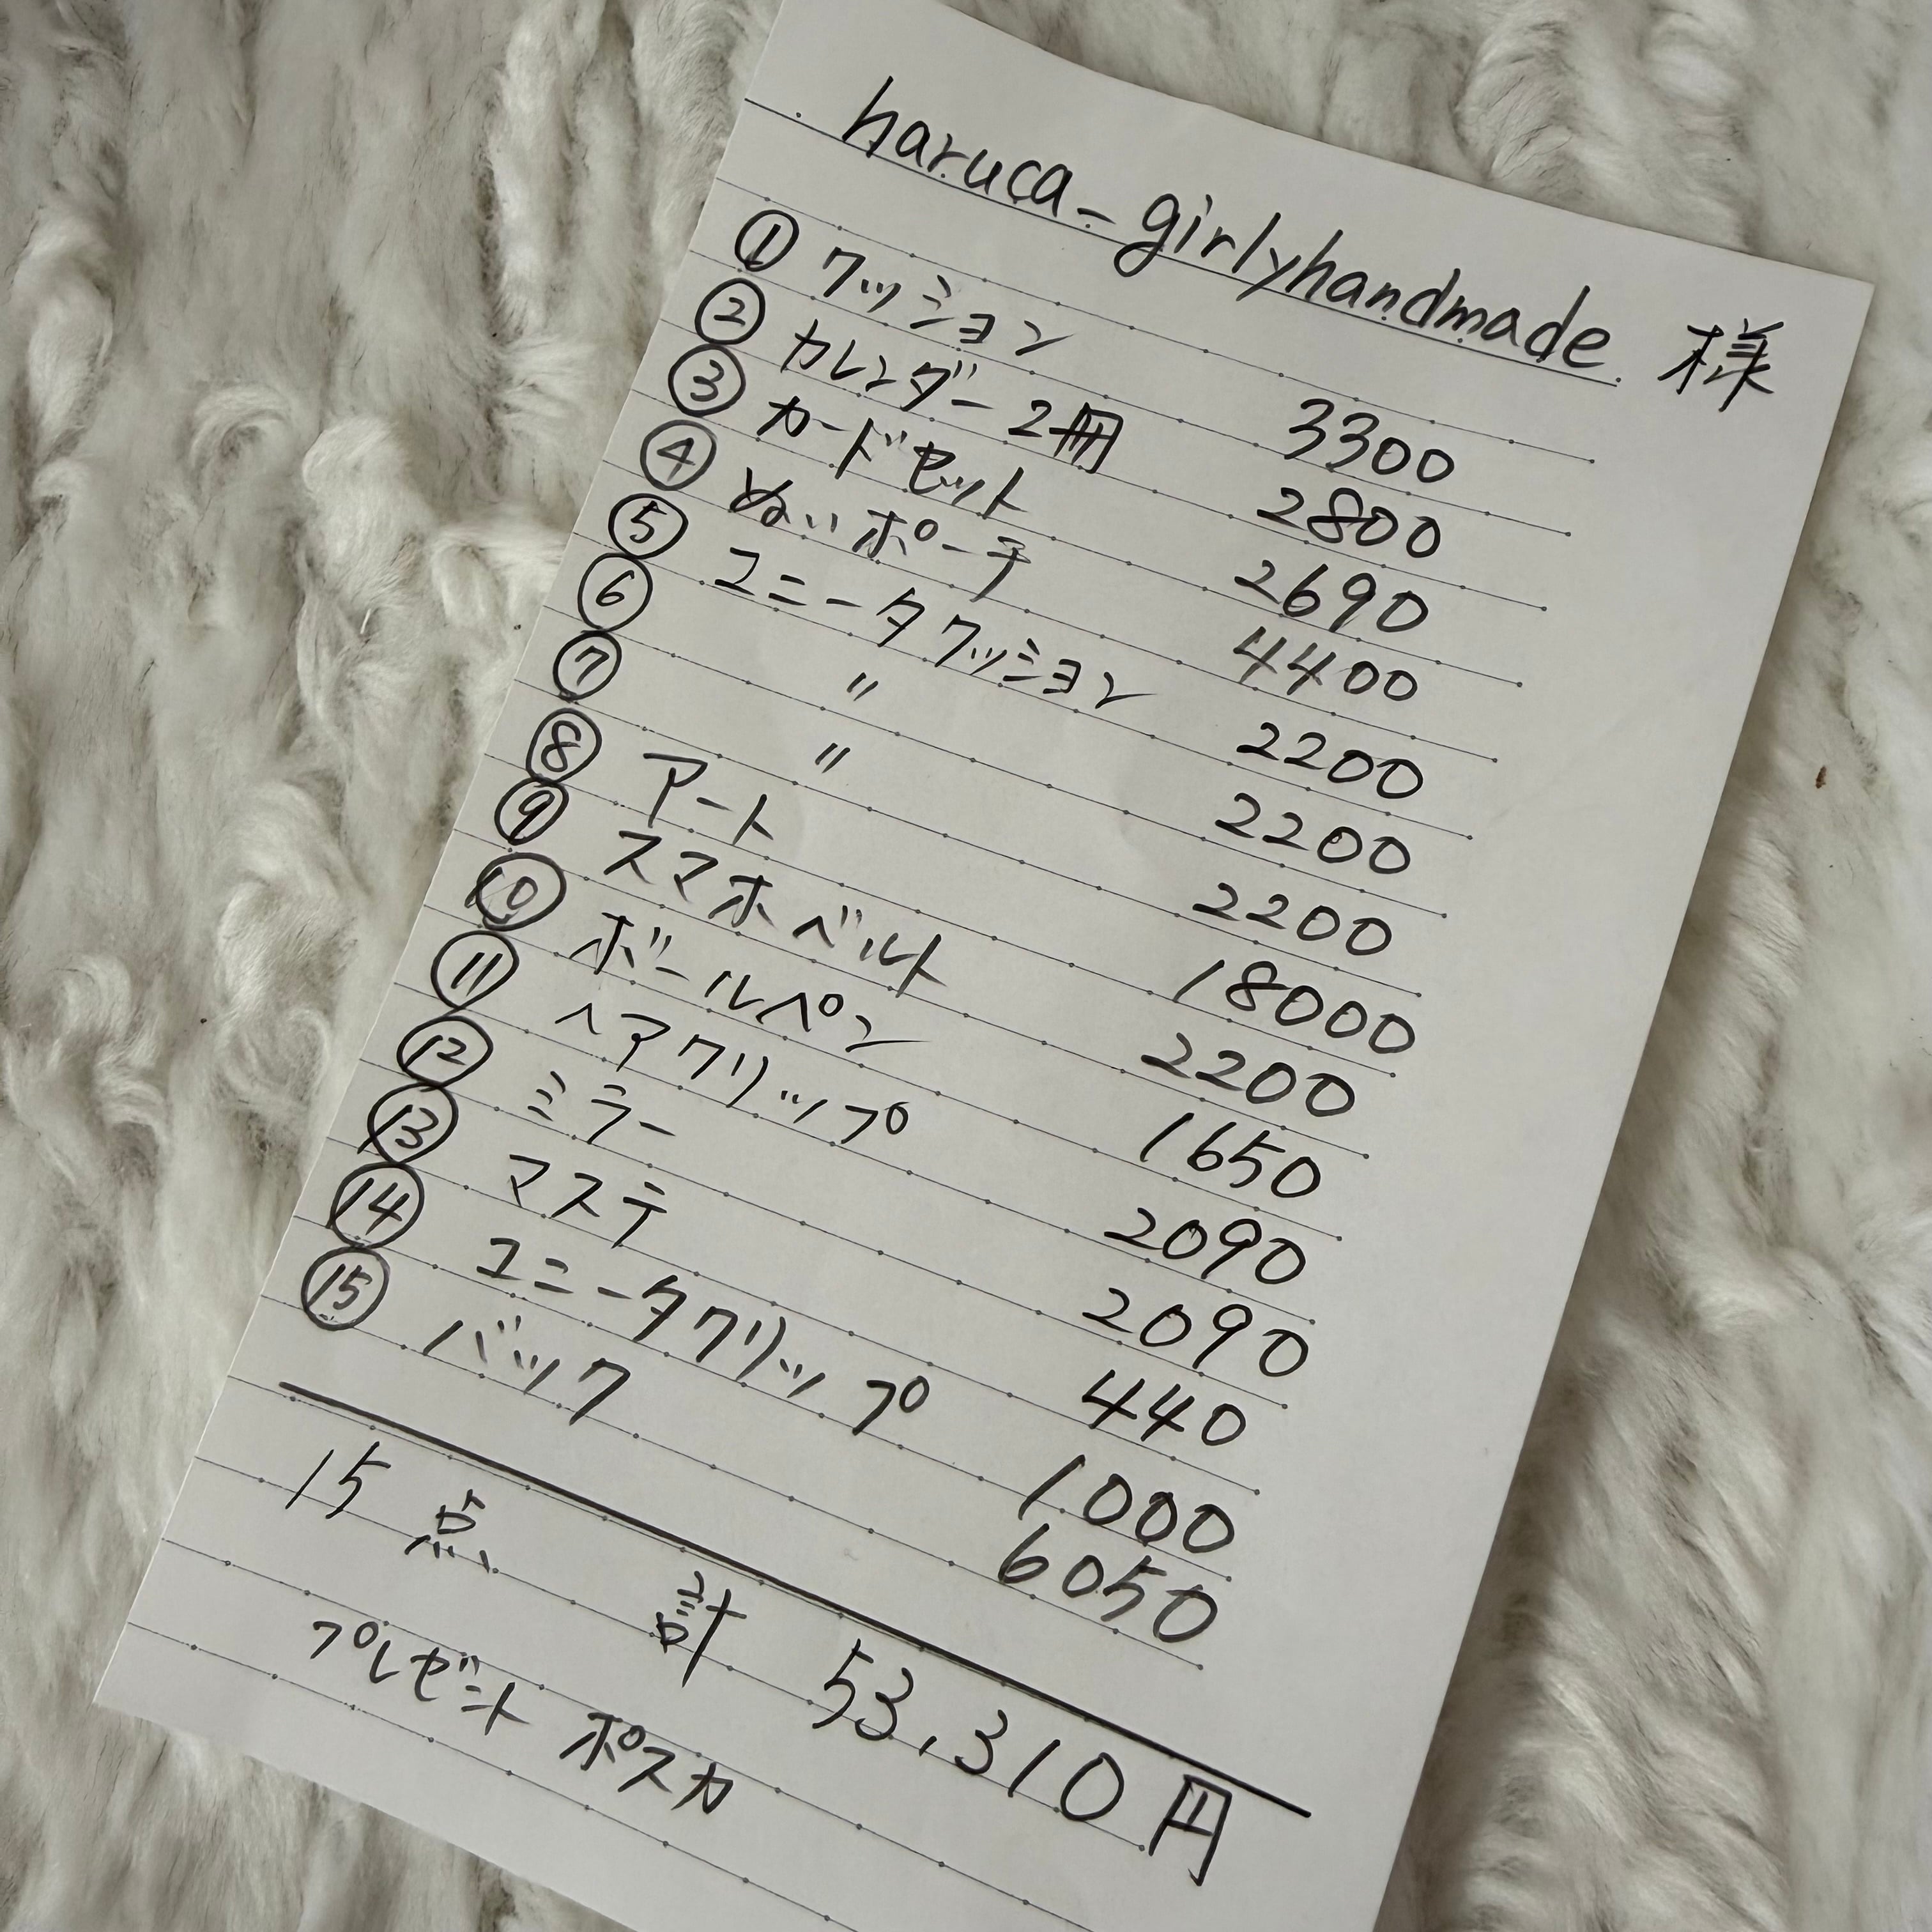 haruca-girlyhandmade 様
① クッション 3300
② カレンダー2冊 2800
③ カードセット 2690
④ ぬいポーチ 4400
⑤ ユニータクッション 2200
⑥ 〃 2200
⑦ 〃 2200
⑧ アート 18000
⑨ スマホベルト 2200
⑩ ボールペン 1650
⑪ ヘアクリップ 2090
⑫ ミラー 2090
⑬ マステ 440
⑭ ユニータクリップ 1000
⑮ バック 6050
15点 計 53,310円
プレゼント ポスカ